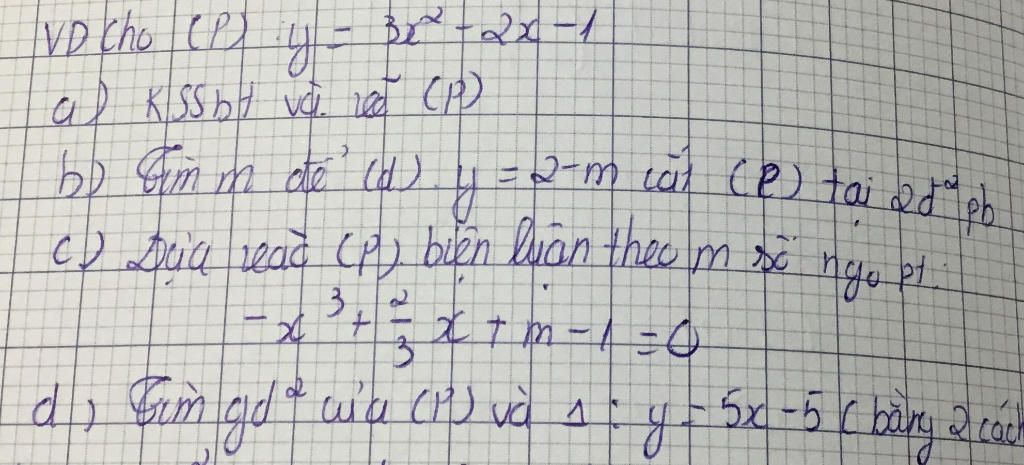 VD Cho (P) : y = 3x² - 2x - 1
a) KSSbt và vẽ (P)
b) Tìm m để (d) y = 2-m cắt (P) tại 2đ² pb
c) Dựa vào (P) biện luận theo m số ngo pt:
-x³ + 2/3 x + m - 1 = 0
d) Tìm gd² của (P) và Δ : y = 5x - 5 ( bằng 2 cách